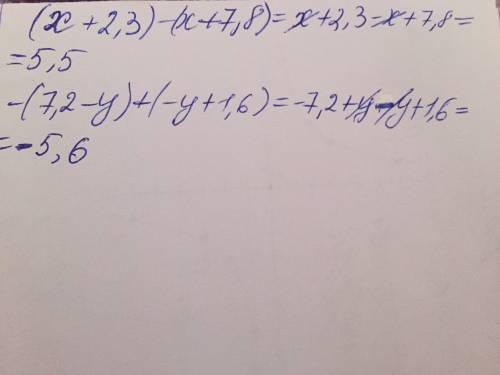 (x+2,3)-(x+7,8)=x+2,3=x+7,8=
=5,5
-(7,2-y)+(-y+1,6)=-7,2+y-y+1,6=
=-5,6